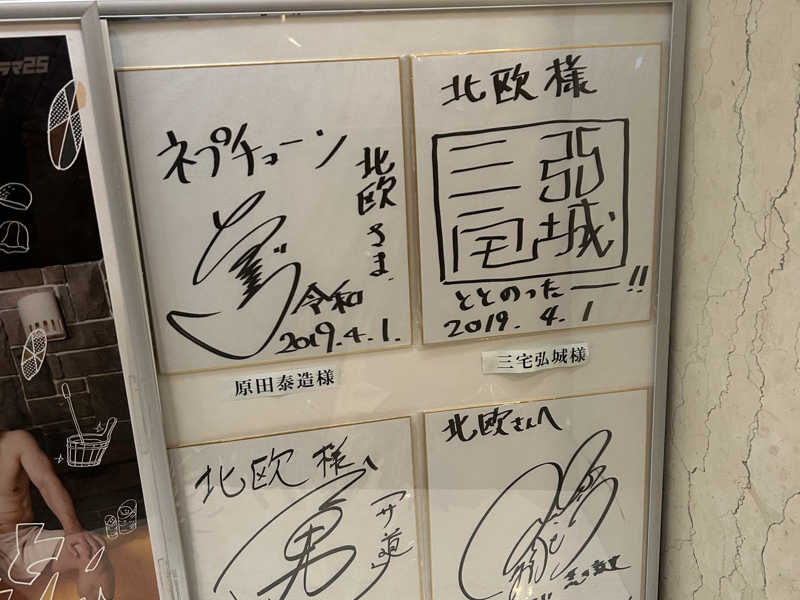 ラマ25
ネプチューン
北欧さま
令和
2019.4.1.
原田泰造様
北欧様
三宅弘城
ととのったー!!
2019. 4. 1
三宅弘城様
北欧様へ
「サ道」
北欧さんへ